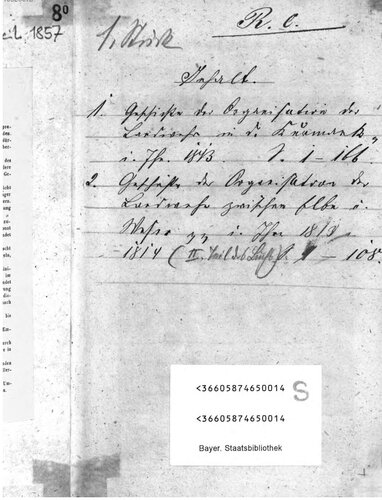 8º
1857
1. Stück
R. C.
Inhalt.
1. Geschichte der Organisation der
Landwehr in d. Kurmark
i. Jhr. 1813 S. 1-166
2. Geschichte der Organisation der
Landwehr zwischen Elbe u.
Weser i. Jhr. 1813 u.
1814 (II. Teil des Buchs) S. 1 - 108.
<36605874650014
S
<36605874650014
Bayer. Staatsbibliothek